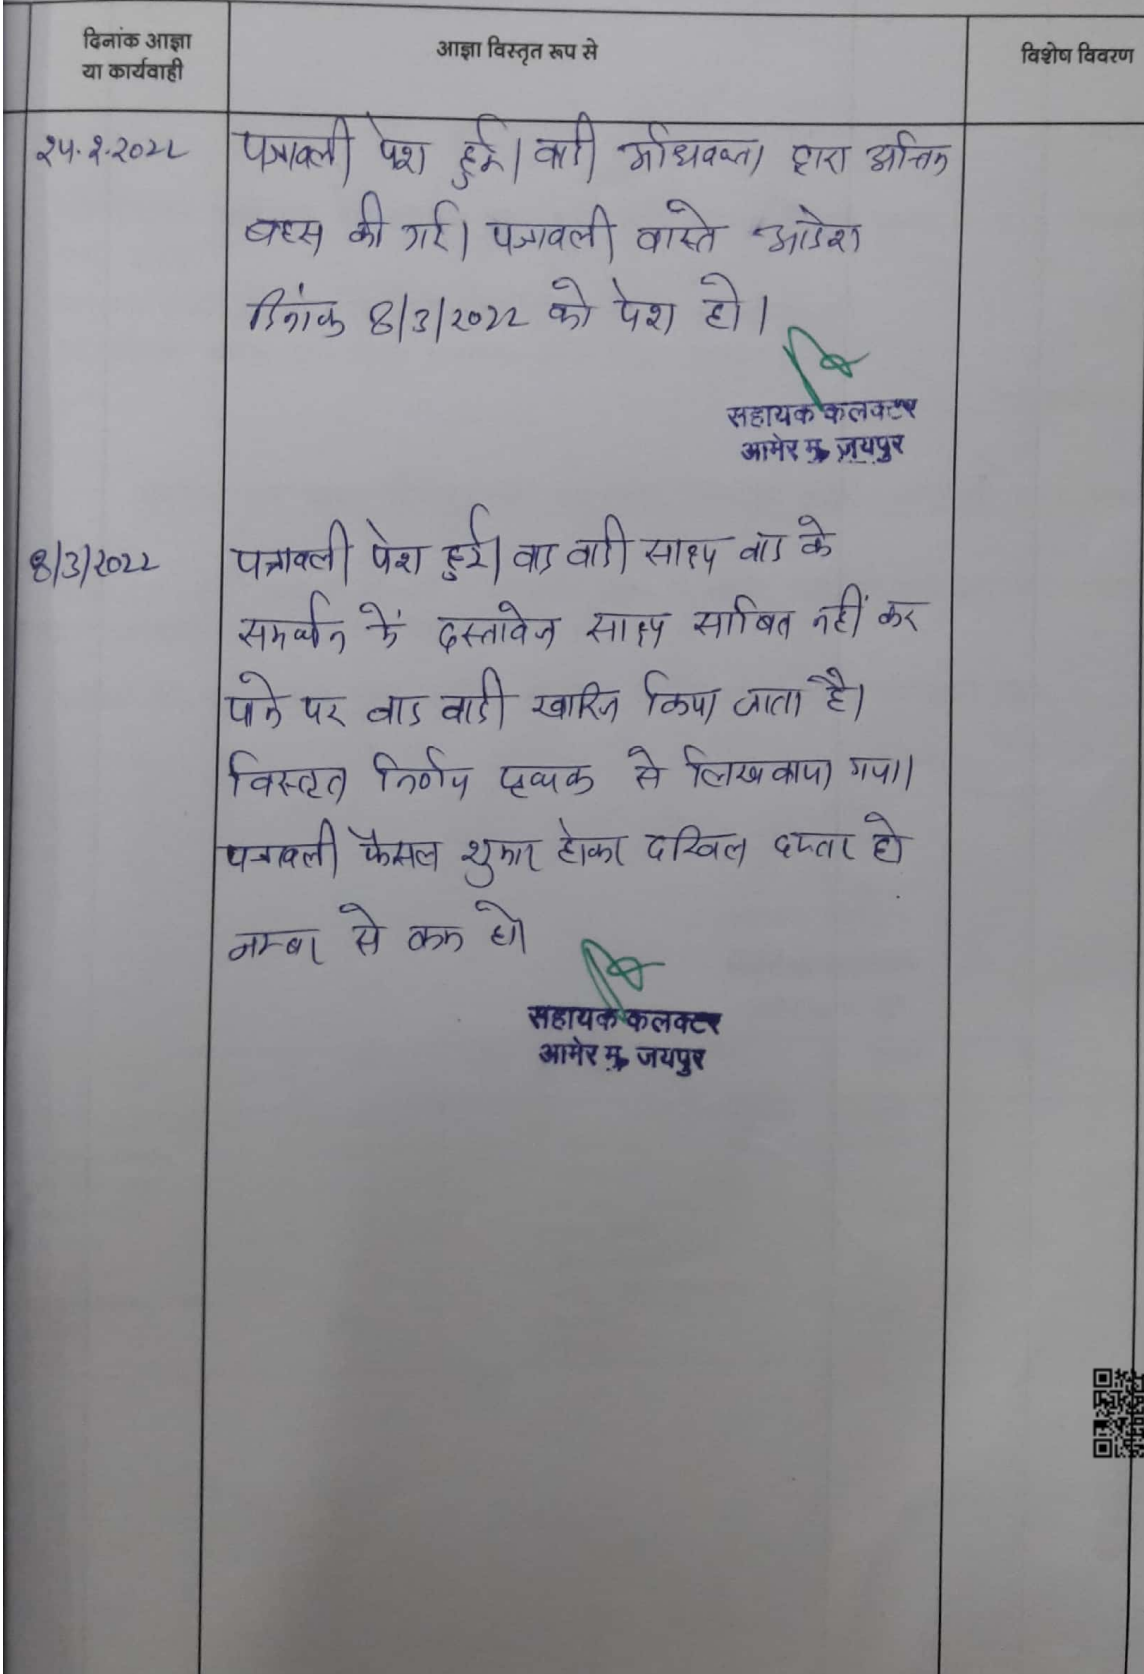 दिनांक आज्ञा
या कार्यवाही
आज्ञा विस्तृत रूप से
विशेष विवरण
२५.२.2022
पत्रावली पेश हुई। वादी अधिवक्ता द्वारा अन्तिम
बहस की गई। पत्रावली वास्ते आदेश
दिनांक 8/3/2022 को पेश हो।
सहायक कलक्टर
आमेर मु. जयपुर
8/3/2022
पत्रावली पेश हुई। वाद वादी साक्ष्य वाद के
समर्थन में दस्तावेज साक्ष्य साबित नहीं कर
पाने पर वाद वादी खारिज किया जाता है।
विस्तृत निर्णय पृथक से लिखवाया गया।
पत्रावली फैसल शुमार होकर दाखिल दफ्तर हो
नम्बर से कम हो।
सहायक कलक्टर
आमेर मु. जयपुर